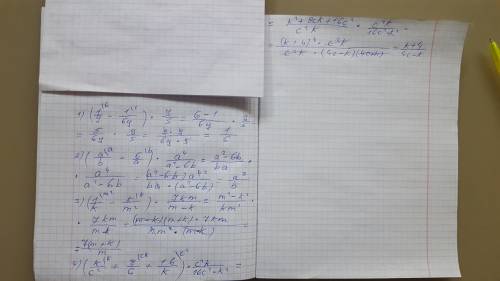 1) (1/y^\6 - 1/6y^\1) · y/5 = 6-1/6y · y/5
= 5/6y · y/5 = 5·y/6y·5 = 1/6
2) (a/b^\a - 6/a^\b) · a⁴/a²-6b = a²-6b/ba ·
· a⁴/a²-6b = (a²-6b)a⁴/ba·(a²-6b) = a³/b
=) (1/k^\m² - k/m²^\k) · 7km/m-k = m²-k²/km² ·
· 7km/m-k = (m-k)(m+k)·7km/km²·(m-k) =
= 7(m+k)/m
4) (k/c²^\k + 8/c^\ck + 16/k^\c²) · c²k/16c²-k² =
= k²+8ck+16c²/c²k · c²k/16c²-k² =
= (k+4)²·c²k/c²k·(4c-k)(4c+k) = k+4/4c-k